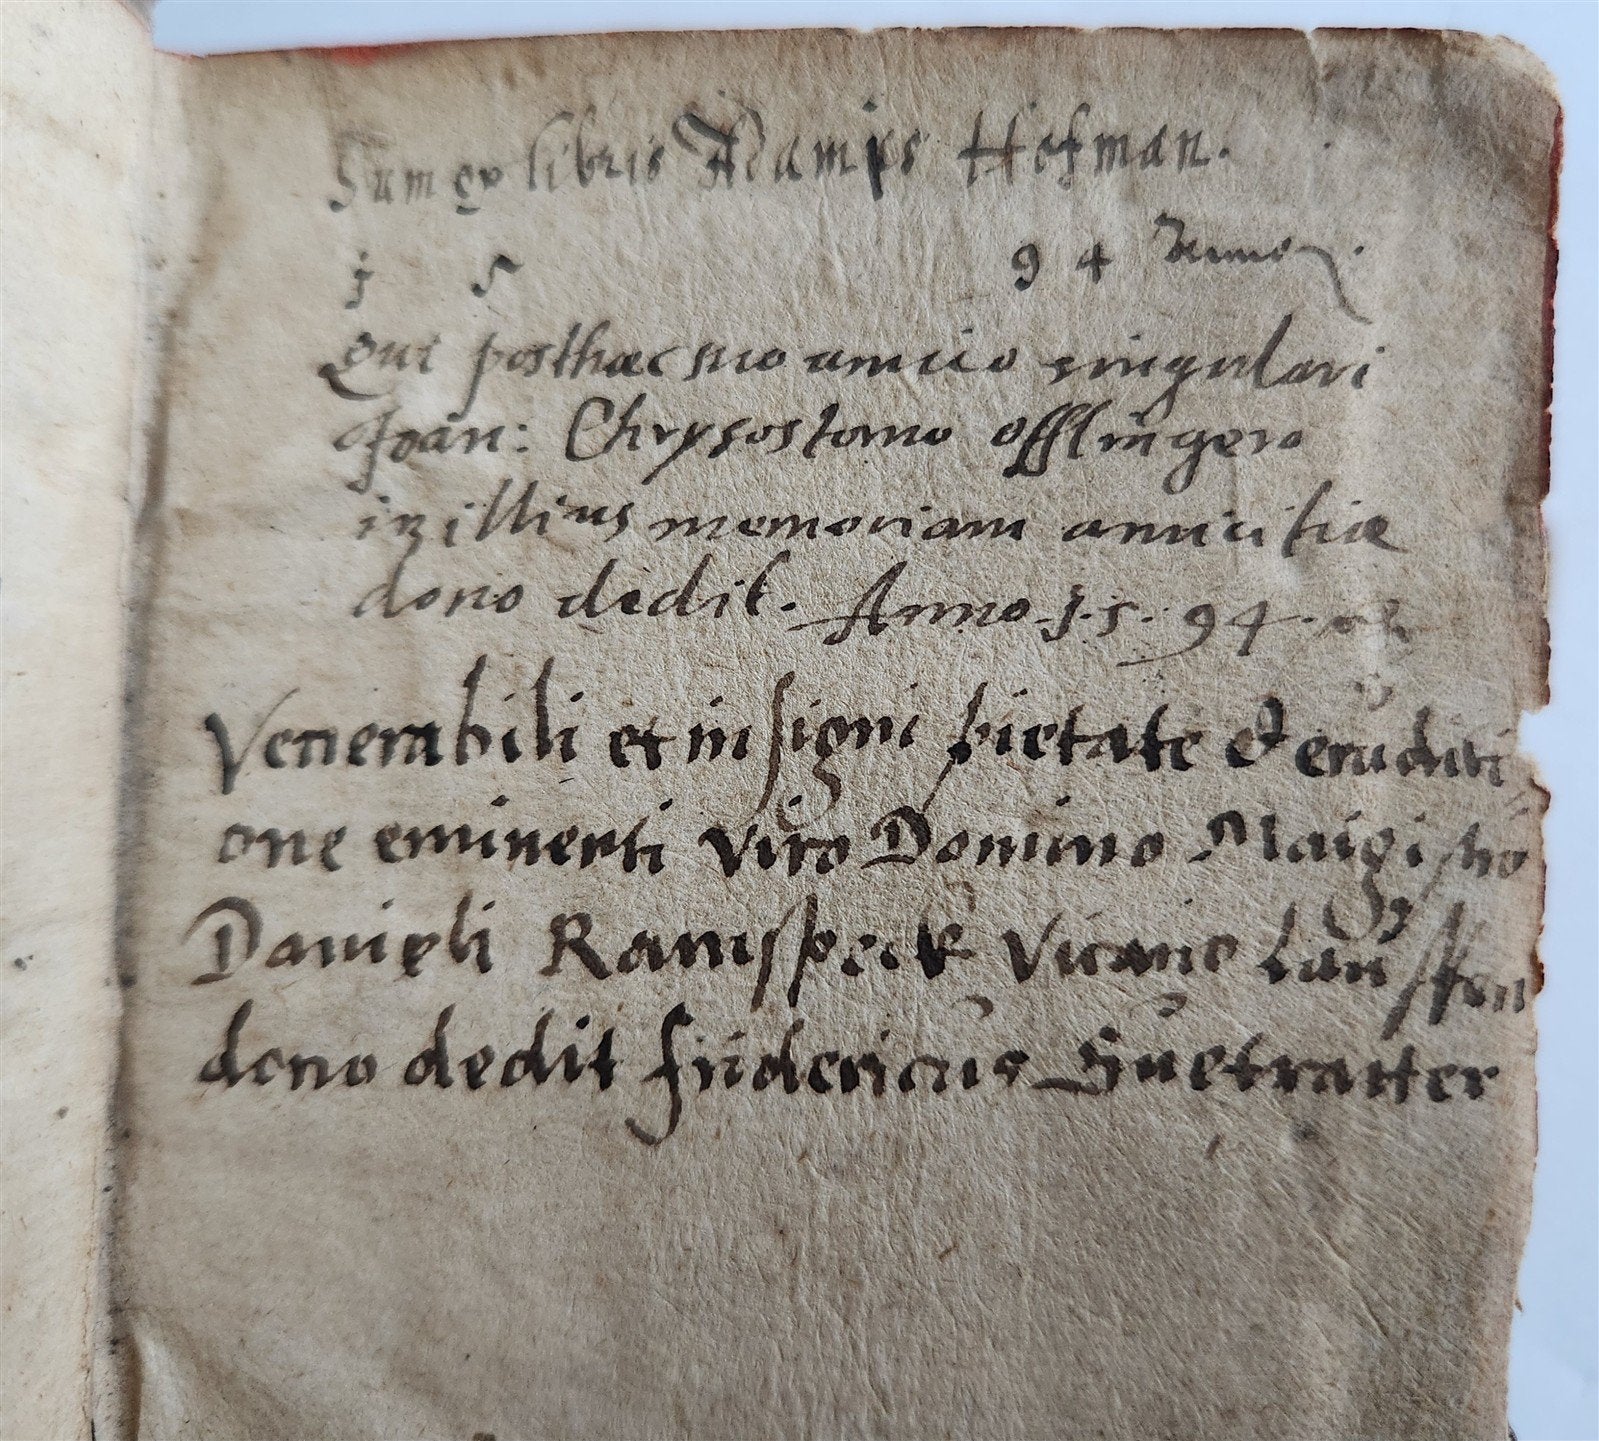 Sum ex libris Hofman.
1 5 9 4
Qui posthac suo amico singulari
Joan: Chrysostomo offlingero
in illius memoriam amicitiae
dono dedit. Anno. 1. 5. 94.
Venerabili et insigni pietate & eruditi
one eminenti viro Domino Maigistro
Danieli Ramspeck Vicano Lauffen
dono dedit fridericus